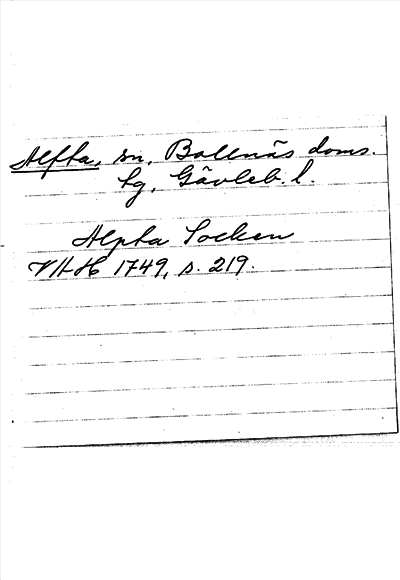 Alfta, sn, Bollnäs doms.
tg, Gävleb. l.
Alpta Socken
VAH 1749, s. 219.